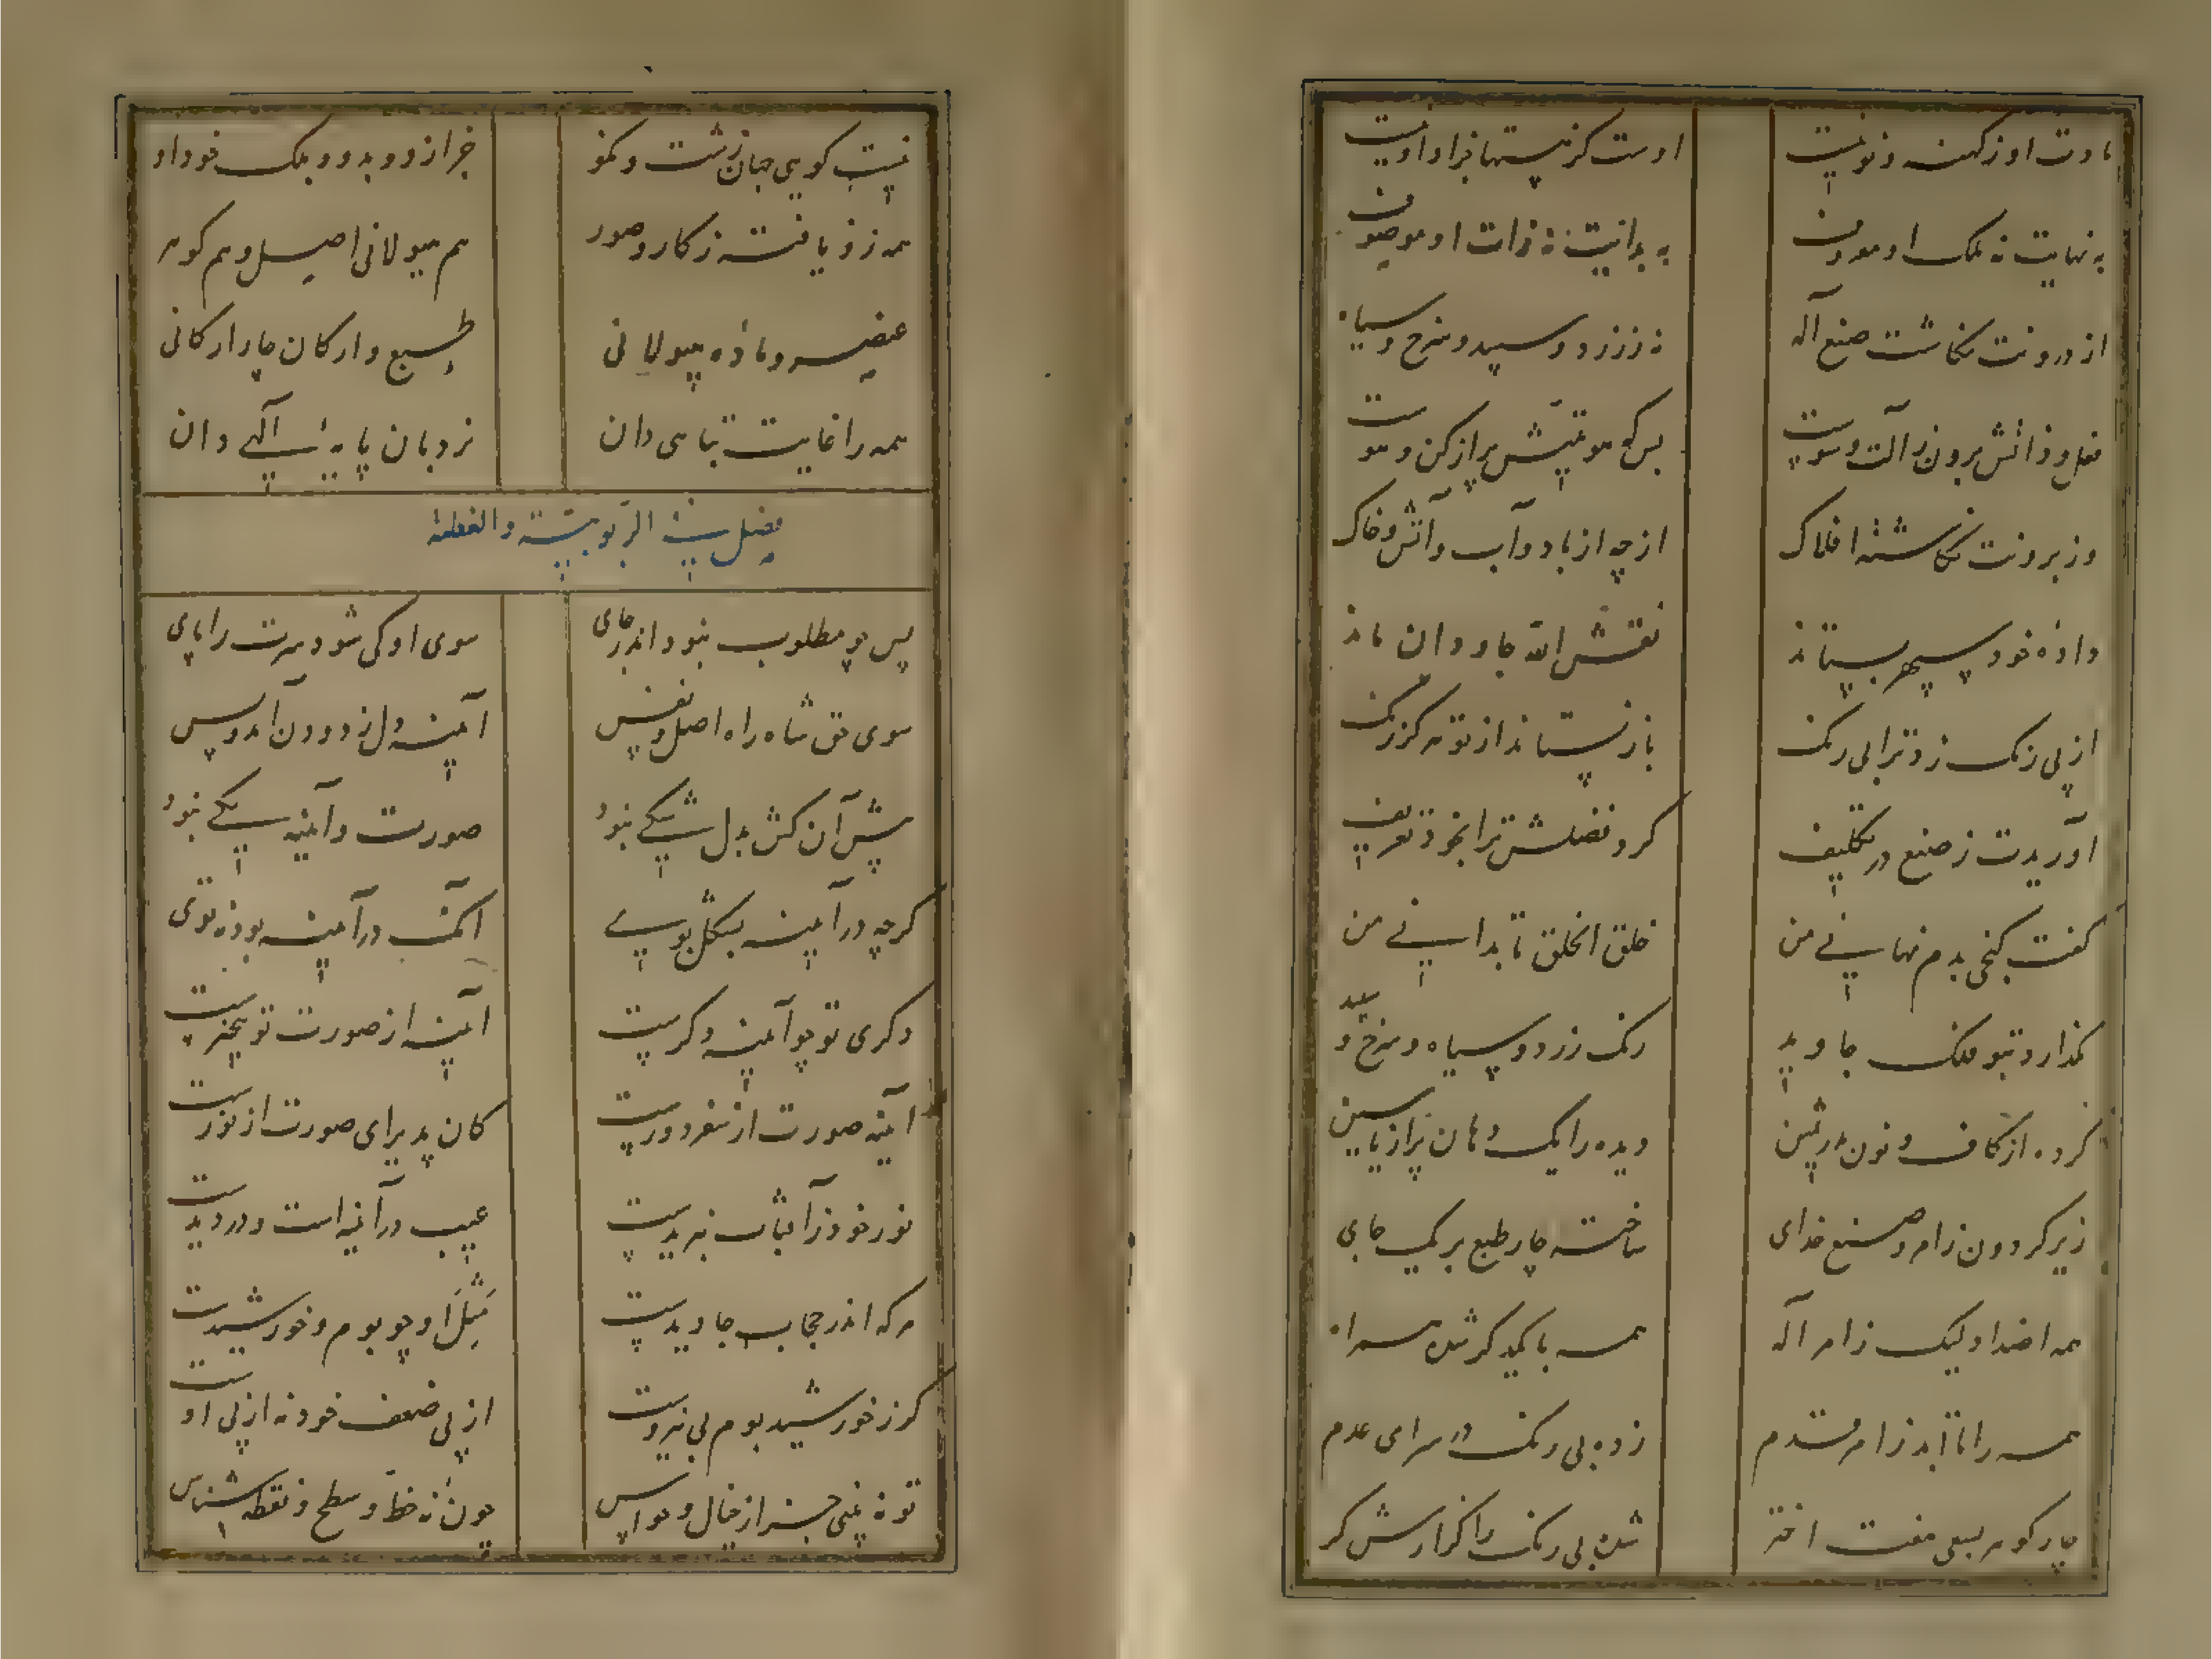 مادت او ز کهنه و نو نیست اوست کز هستها جز او او نیست
به نهایت نه ملک او معروف به بدایت نه ذات او موصوف
از درونت نگاشت صنع آله نه ز زرد و سپید و سرخ و سیاه
فعل و ذاتش برون ز آلت و سوست بس که هویتش پر از کن و هوست
وز برونت نگاشته افلاک از چه از باد و آب و آتش و خاک
داذه خود سپهر بستاند نقش الله جاودان ماند
از پی رنک زد ترا بی رنک باز نستاند از تو هرکز رنک
آوریدت ز صنع در تکلیف کرد فضلش ترا بخود تعریف
کفت کنجی بدم نهانی من خلق الخلق تا بدانی من
نکذارد بتو فلک جاوید رنک زرد و سیاه و سرخ و سپید
کرده از کاف و نون در ثمین دیده را یک دهان پر از یاسین
زیر کردون ز امر و صنع خدای ساخته چار طبع بر یک جای
همه اضداد لیک ز امر آله همه با یکدکر شده همراه
همه را تا ابد ز امر قدم زده بی رنک در سرای عدم
چار کوهر بسعی هفت اختر شده بی رنک را کزارش کر
نیست کویی جهان زشت و نکو جز ازو و بدو و بلک خود او
همه زو یافته نکار و صور هم هیولانی اصیل و هم کوهر
عنصر و ماده هیولانی طبع و ارکان چار ارکانی
همه را غایت تناهی دان نردبان پایه الهی دان
فصل فی الربوبیة والعظمة
پس چو مطلوب نبود اندر جای سوی او کی شود سرت را پای
سوی حق شاه راه اصل و نفس آینه دل زدودن آمد و بس
پیش آن کش بدل شکی نبود صورت و آینه یکی نبود
کرچه در آینه بشکل بوی آنک در آینه بود نه توی
دکری تو چو آینه دکرست آینه از صورت تو بیخبرست
آینه صورت از سفر دورست کان پدیرای صورت از نورست
نور خود ز آفتاب نبریدست عیب در آینه است و در دیدست
هرکه اندر حجاب جاویدست مثل او چو بوم و خورشیدست
کر ز خورشید بوم بی نیروست از پی ضعف خود نه از پی اوست
تو نه بینی جز از خیال و حواس چون نه خط و سطح و نقطه شناس